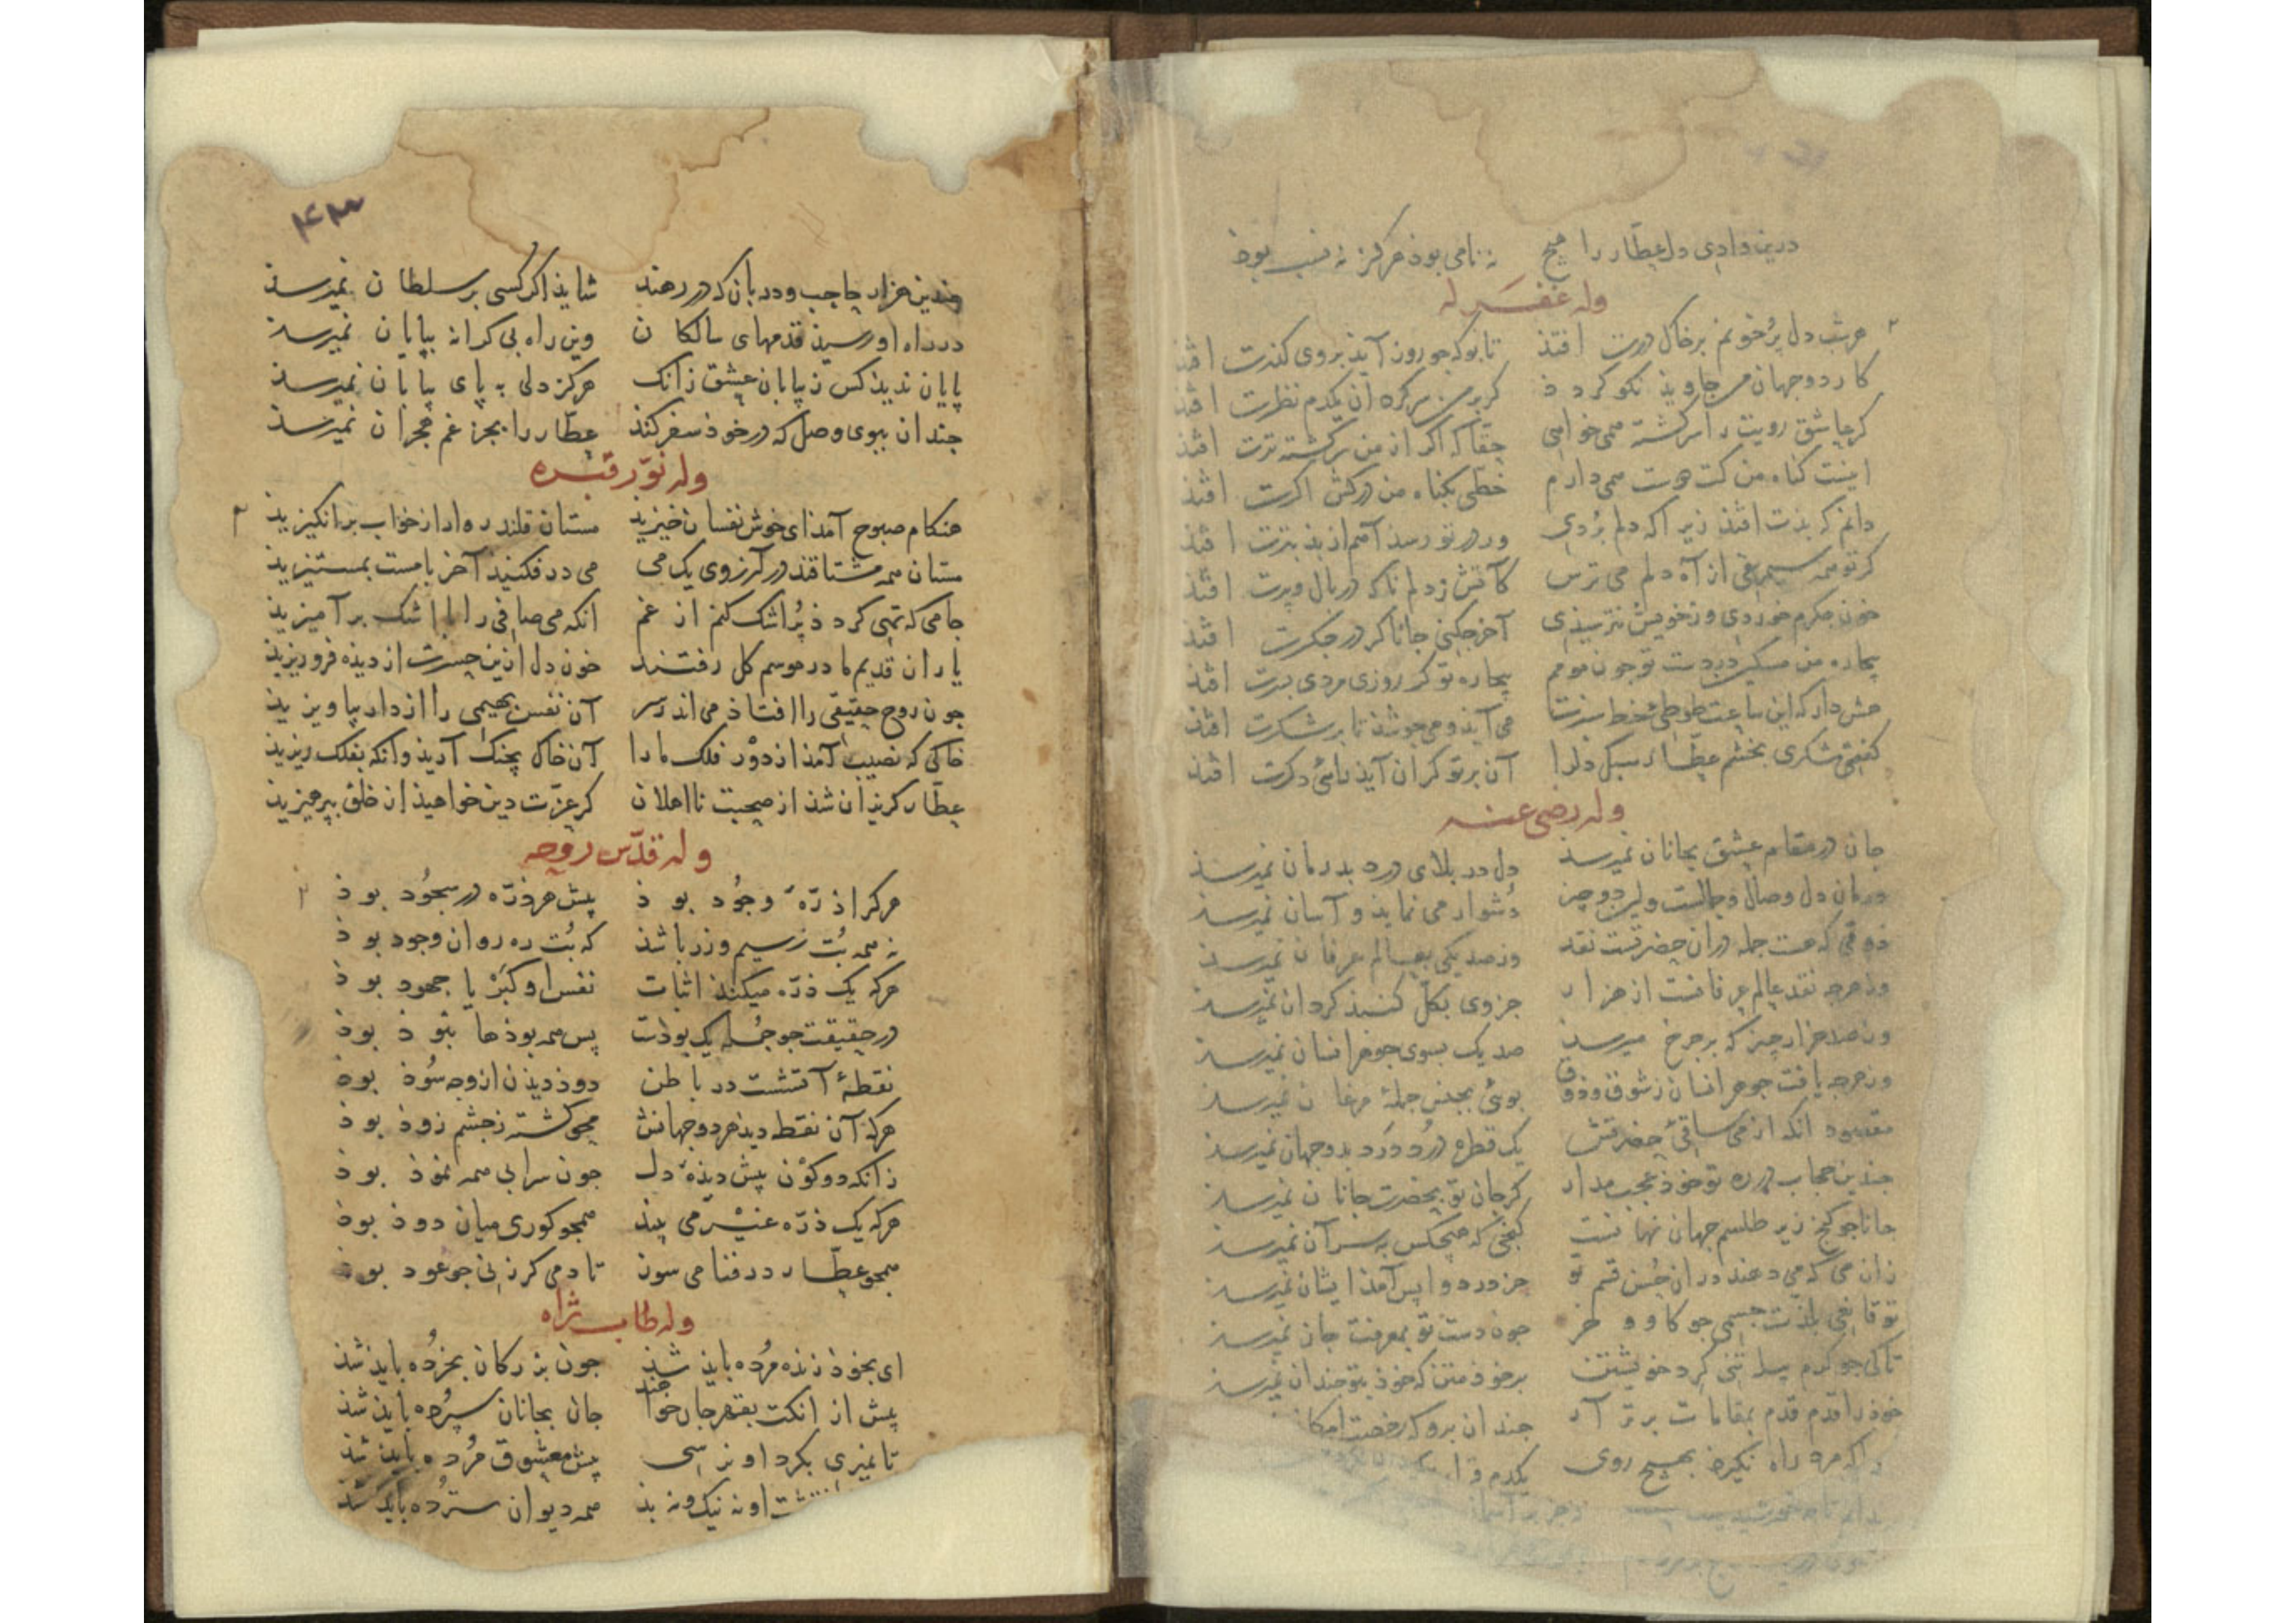 درین وادی دل عطار را هیچ نه نامی بوذ هرکز نه نسب بوذ
وله غفر له
هرشب دل پرخونم برخاک درت افتذ تا بوکه جو روز آیذ بروی کذرت افتذ
کار دو جهان من جاویذ نکو کردذ کر بر من سرکره آن یکدم نظرت افتذ
کر عاشق رویت را سرکشته همی خواهی حقا که اکر از من سرکشته ترت افتذ
اینست کناه من کت دوست همی دارم خطی بکناه من درکش اکرت افتذ
دانم که بذت افتذ زیرا که دلم بردی ور در تو رسذ آهم از بذ بترت افتذ
کر تو همه سیمرغی از آه دلم می ترس کآتش ز دلم ناکه در بال و پرت افتذ
خون جکرم خوردی وز خویش نترسیذی آخر جکنی جانا کر در جکرت افتذ
بیجاره من مسکین در دست تو جون مومم بیجاره تو کر روزی مردی بسرت افتذ
هش دار که این ساعت طوطی خط سبزت می آیذ و می جوشذ تا بر شکرت افتذ
کفتی شکری بخشم عطار سبک دل را آن بر تو کران آیذ رائی دکرت افتذ
وله رضی عنه
جان در مقام عشق بجانان نمیرسذ دل در بلای درد بدرمان نمیرسذ
درمان دل وصال و جمالست ولین دو جیز دشوار می نمایذ و آسان نمیرسذ
ذوقی که هست جمله در آن حضرتست نقد وز صد یکی بعالم عرفان نمیرسذ
وز هرجه نقد عالم عرفانست از هزار جزوی بکل کنبذ کردان نمیرسذ
وز صد هزار جیز که بر جرخ میرسذ صد یک بسوی جوهر انسان نمیرسذ
وز هرجه یافت جوهر انسان ز شوق و ذوق بوئی بجنس جمله مرغان نمیرسذ
مقصود آنکه از می ساقی حضرتش یک قطره درد درد بدو جهان نمیرسذ
جندین حجاب در ره تو خوذ عجب مدار کر جان تو بحضرت جانان نمیرسذ
جانان جو کنج زیر طلسم جهان نهانست کنجی که هیجکس به سر آن نمیرسذ
زان می که می دهند در آن حسن قسم تو جز درد وا پس آمذ ایشان نمیرسذ
تو قانعی بلذت جسمی جو کاو و خر جون دست تو بمعرفت جان نمیرسذ
تا کی جو کرم پیله تنی کرد خویشتن بر خوذ متن که خوذ بتو جندان نمیرسذ
خوذ را قدم قدم بمقامات برتر آر جندان برو که رخصت امکان
راکه مرد راه نکیرذ بهیج روی یکدم
۴۳
جندین هزار حاجب و دربان که در رهند شایذ اکر کسی بر سلطان نمیرسذ
در راه او رسیذ قدمهای سالکان وین راه بی کرانه بپایان نمیرسذ
پایان ندیذ کس ز بیابان عشق زانک هرکز دلی به پای بیابان نمیرسذ
جندان ببوی وصل که در خوذ سفر کنذ عطار را بجز غم هجران نمیرسذ
وله نور قبره
هنکام صبوح آمذ ای خوش نفسان خیزیذ مستان قلندر وار از خواب برانکیزیذ
مستان همه مشتاقند در آرزوی یک می می در فکنیذ آخر با مست بمستیزیذ
جامی که تهی کردذ پر اشک کنم از غم انکه می صافی را با اشک برآمیزیذ
یاران قدیم ما در موسم کل رفتند خون دل ازین حسرت از دیذه فروریزیذ
جون روح حقیقی را افتاذ می اندر سر آن نفس بهیمی را از دار بیاویزیذ
خاکی که نصیب آمذ از دور فلک ما را آن خاک بجنک آریذ وانکه بفلک ریزیذ
عطار کریزان شذ از صحبت نااهلان کر عزت دین خواهیذ از خلق بپرهیزیذ
وله قدس روحه
هرکرا ذره وجود بوذ پیش هر ذره در سجود بوذ
نه همه بت ز سیم و زر باشذ که بت ره روان وجود بوذ
هرکه یک ذره میکنذ اثبات نفس او کبر یا جهود بوذ
در حقیقت جو جمله یک بوذست پس همه بوذها نبوذ بوذ
نقطه آتشست در باطن دوذ دیذن ازو جه سوذ بوذ
هرکه آن نقطه دیذ هر دو جهانش محو کشته ز جشم زوذ بوذ
زانکه دو کون پیش دیذه دل جون سرابی همه نموذ بوذ
هرکه یک ذره غیر می بینذ همجو کوری میان دوذ بوذ
همجو عطار در فنا می سوز تا دمی کر زنی جو عود بوذ
وله طاب ثراه
ای بخوذ زنده مرده بایذ شذ جون بزرکان بخرده بایذ شذ
پیش از انکت بقهر جان خواهند جان بجانان سپرده بایذ شذ
تا نمیری بکرد او نرسی پیش معشوق مرده بایذ شذ
او نه نیک و نه بذ همه دیوان سترده بایذ شذ